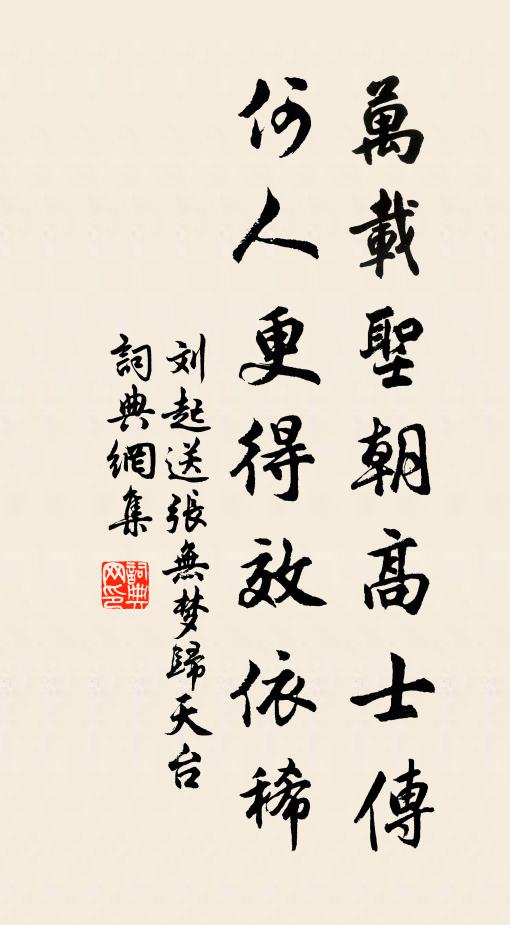 萬載聖朝高士傳
何人更得效依稀
刘起送張無梦歸天台
詞典網集
詞典网印